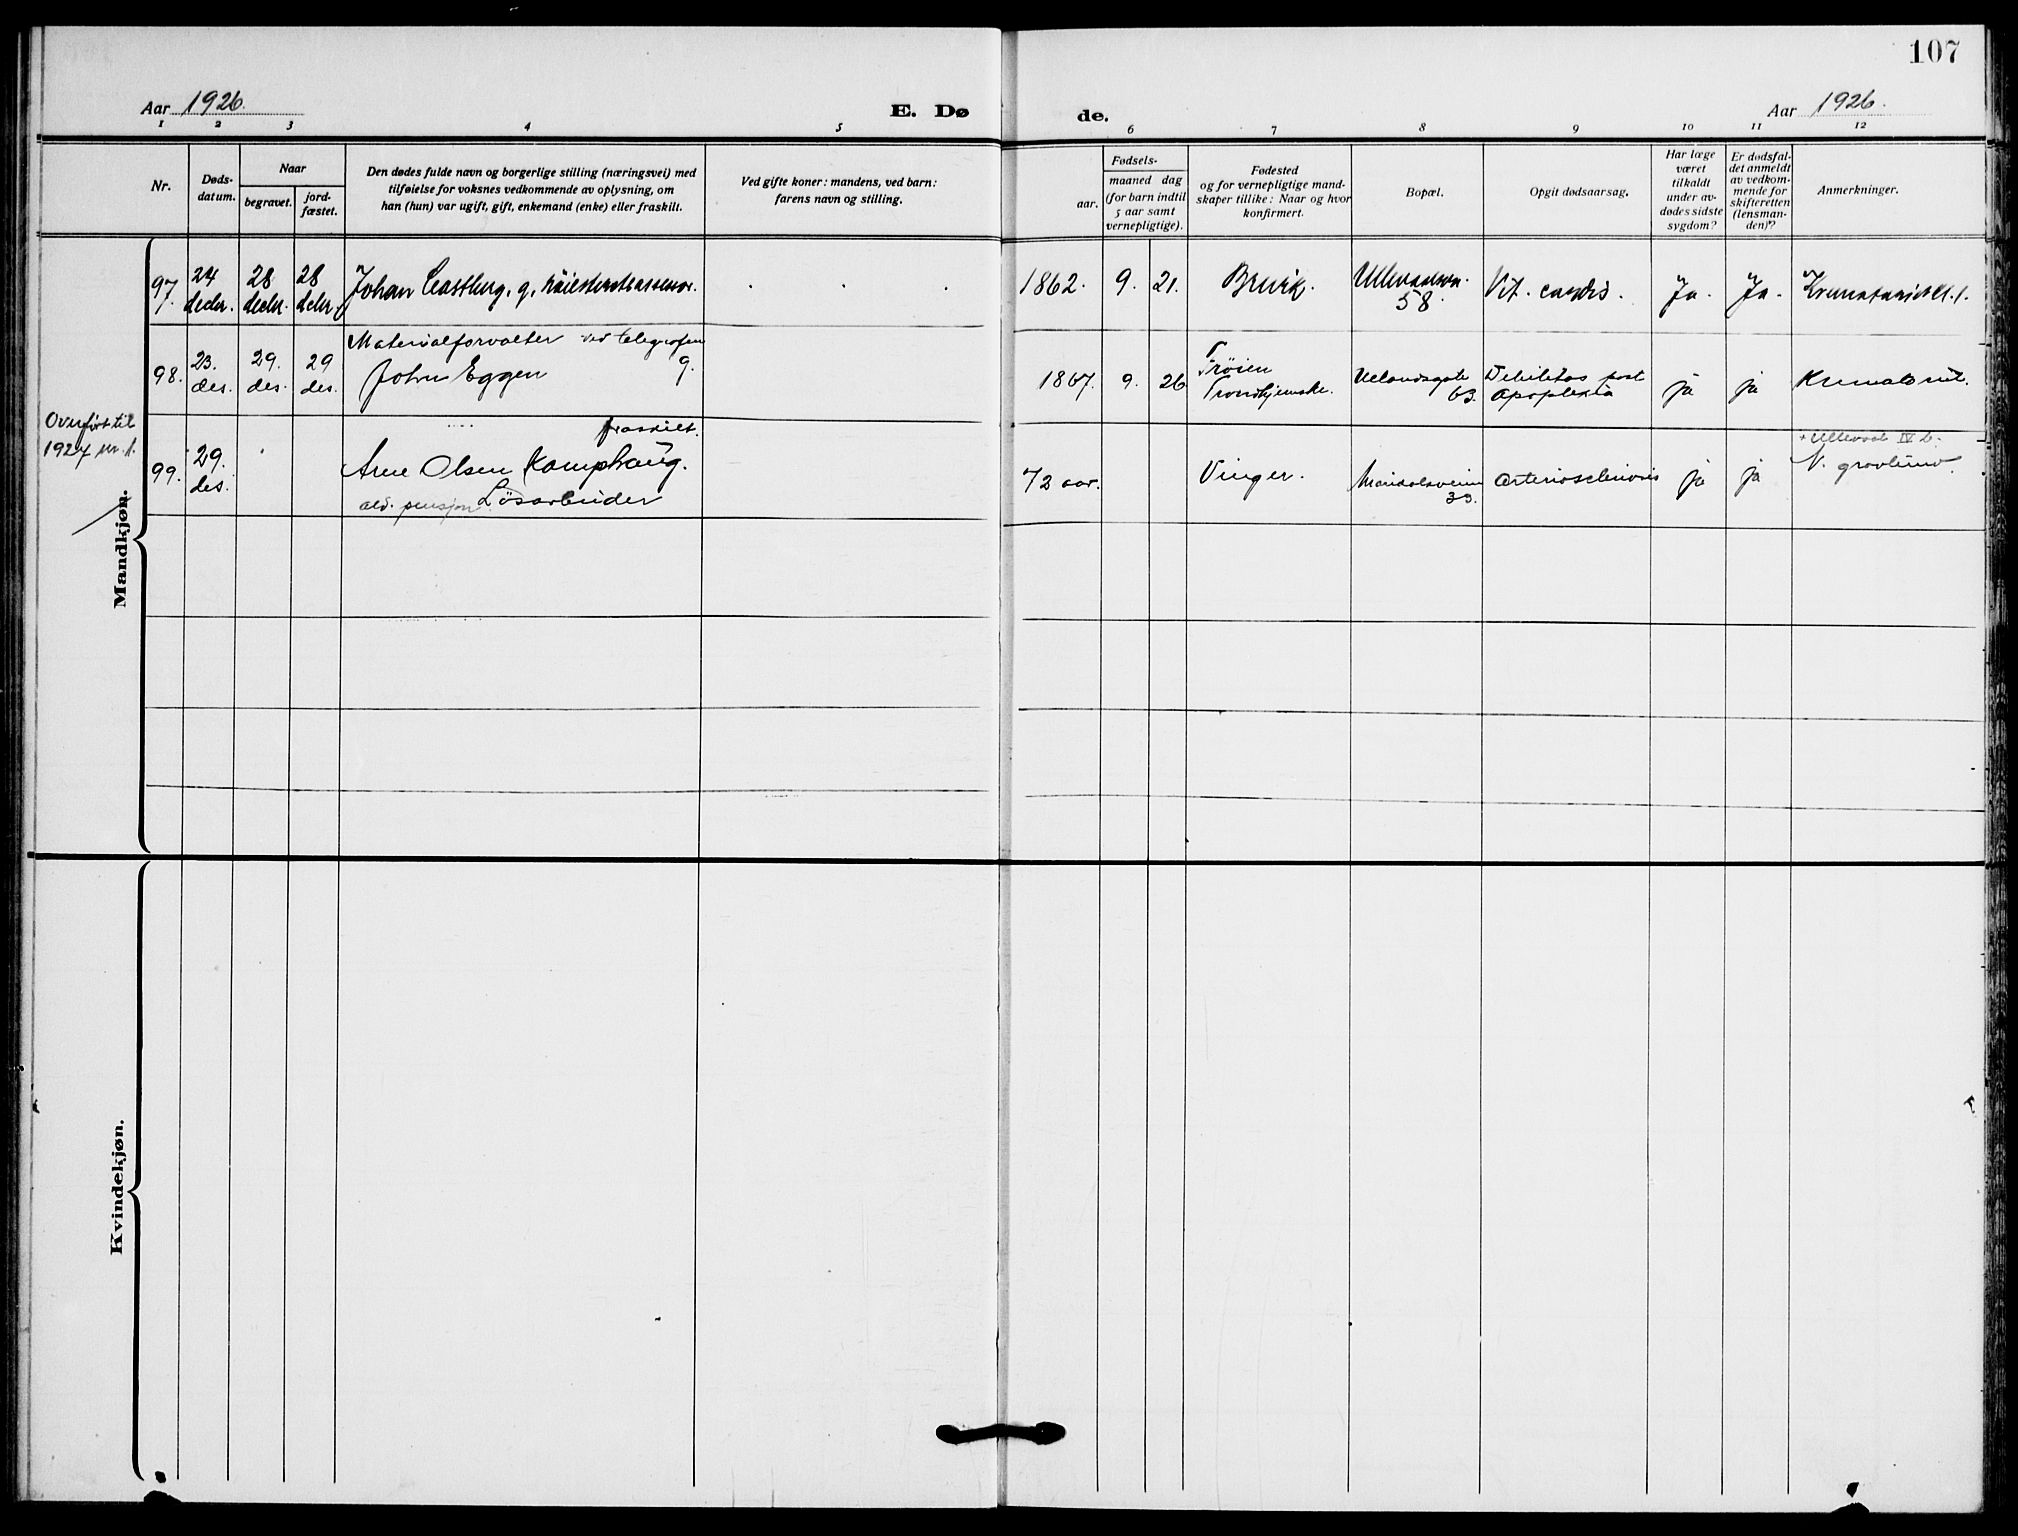 107
Aar 1926.
E. Dø
de.
Aar 1926.
1 2 3 4 5 6 7 8 9 10 11 12
Nr.
Døds-
datum.
Naar
begravet.
jord-
fæstet.
Den dødes fulde navn og borgerlige stilling (næringsvei) med
tilføielse for voksnes vedkommende av oplysning, om
han (hun) var ugift, gift, enkemand (enke) eller fraskilt.
Ved gifte koner: mandens, ved barn:
farens navn og stilling.
Fødsels-
aar.
maaned dag
(for barn indtil
5 aar samt
vernepligtige).
Fødested
og for vernepligtige mand-
skaper tillike: Naar og hvor
konfirmert.
Bopæl.
Opgit dødsaarsag.
Har læge
været
tilkaldt
under av-
dødes sidste
sygdom?
Er dødsfal-
det anmeldt
av vedkom-
mende for
skifteretten
(lensman-
den)?
Anmerkninger.
Mandkjøn.
97.
24
decbr.
28
decbr.
28
decbr.
Johan Castberg, g, høiesteretsassessor.
1862. 9. 21.
Brevik.
58.
Vit. cordis.
Ja. Ja.
98.
23.
des.
29.
des.
29
des.
Materialforvalter ved telegrafen
John Eggen g.
1867. 9. 26
Trondhjemske.
Uelandsgate
63.
Debilitas post
apoplexia
ja ja
Krematoriet.
Overført til
1927 nr. 1.
99.
29.
des.
fraskilt.
Arne Olsen Kamphaug.
ald. pensjon Løsarbeider
72 aar.
Vinger.
Maridalsveien
33.
Arteriosclerosis
ja ja
+ Ullevaal IV
N. gravlund.
Kvindekjøn.